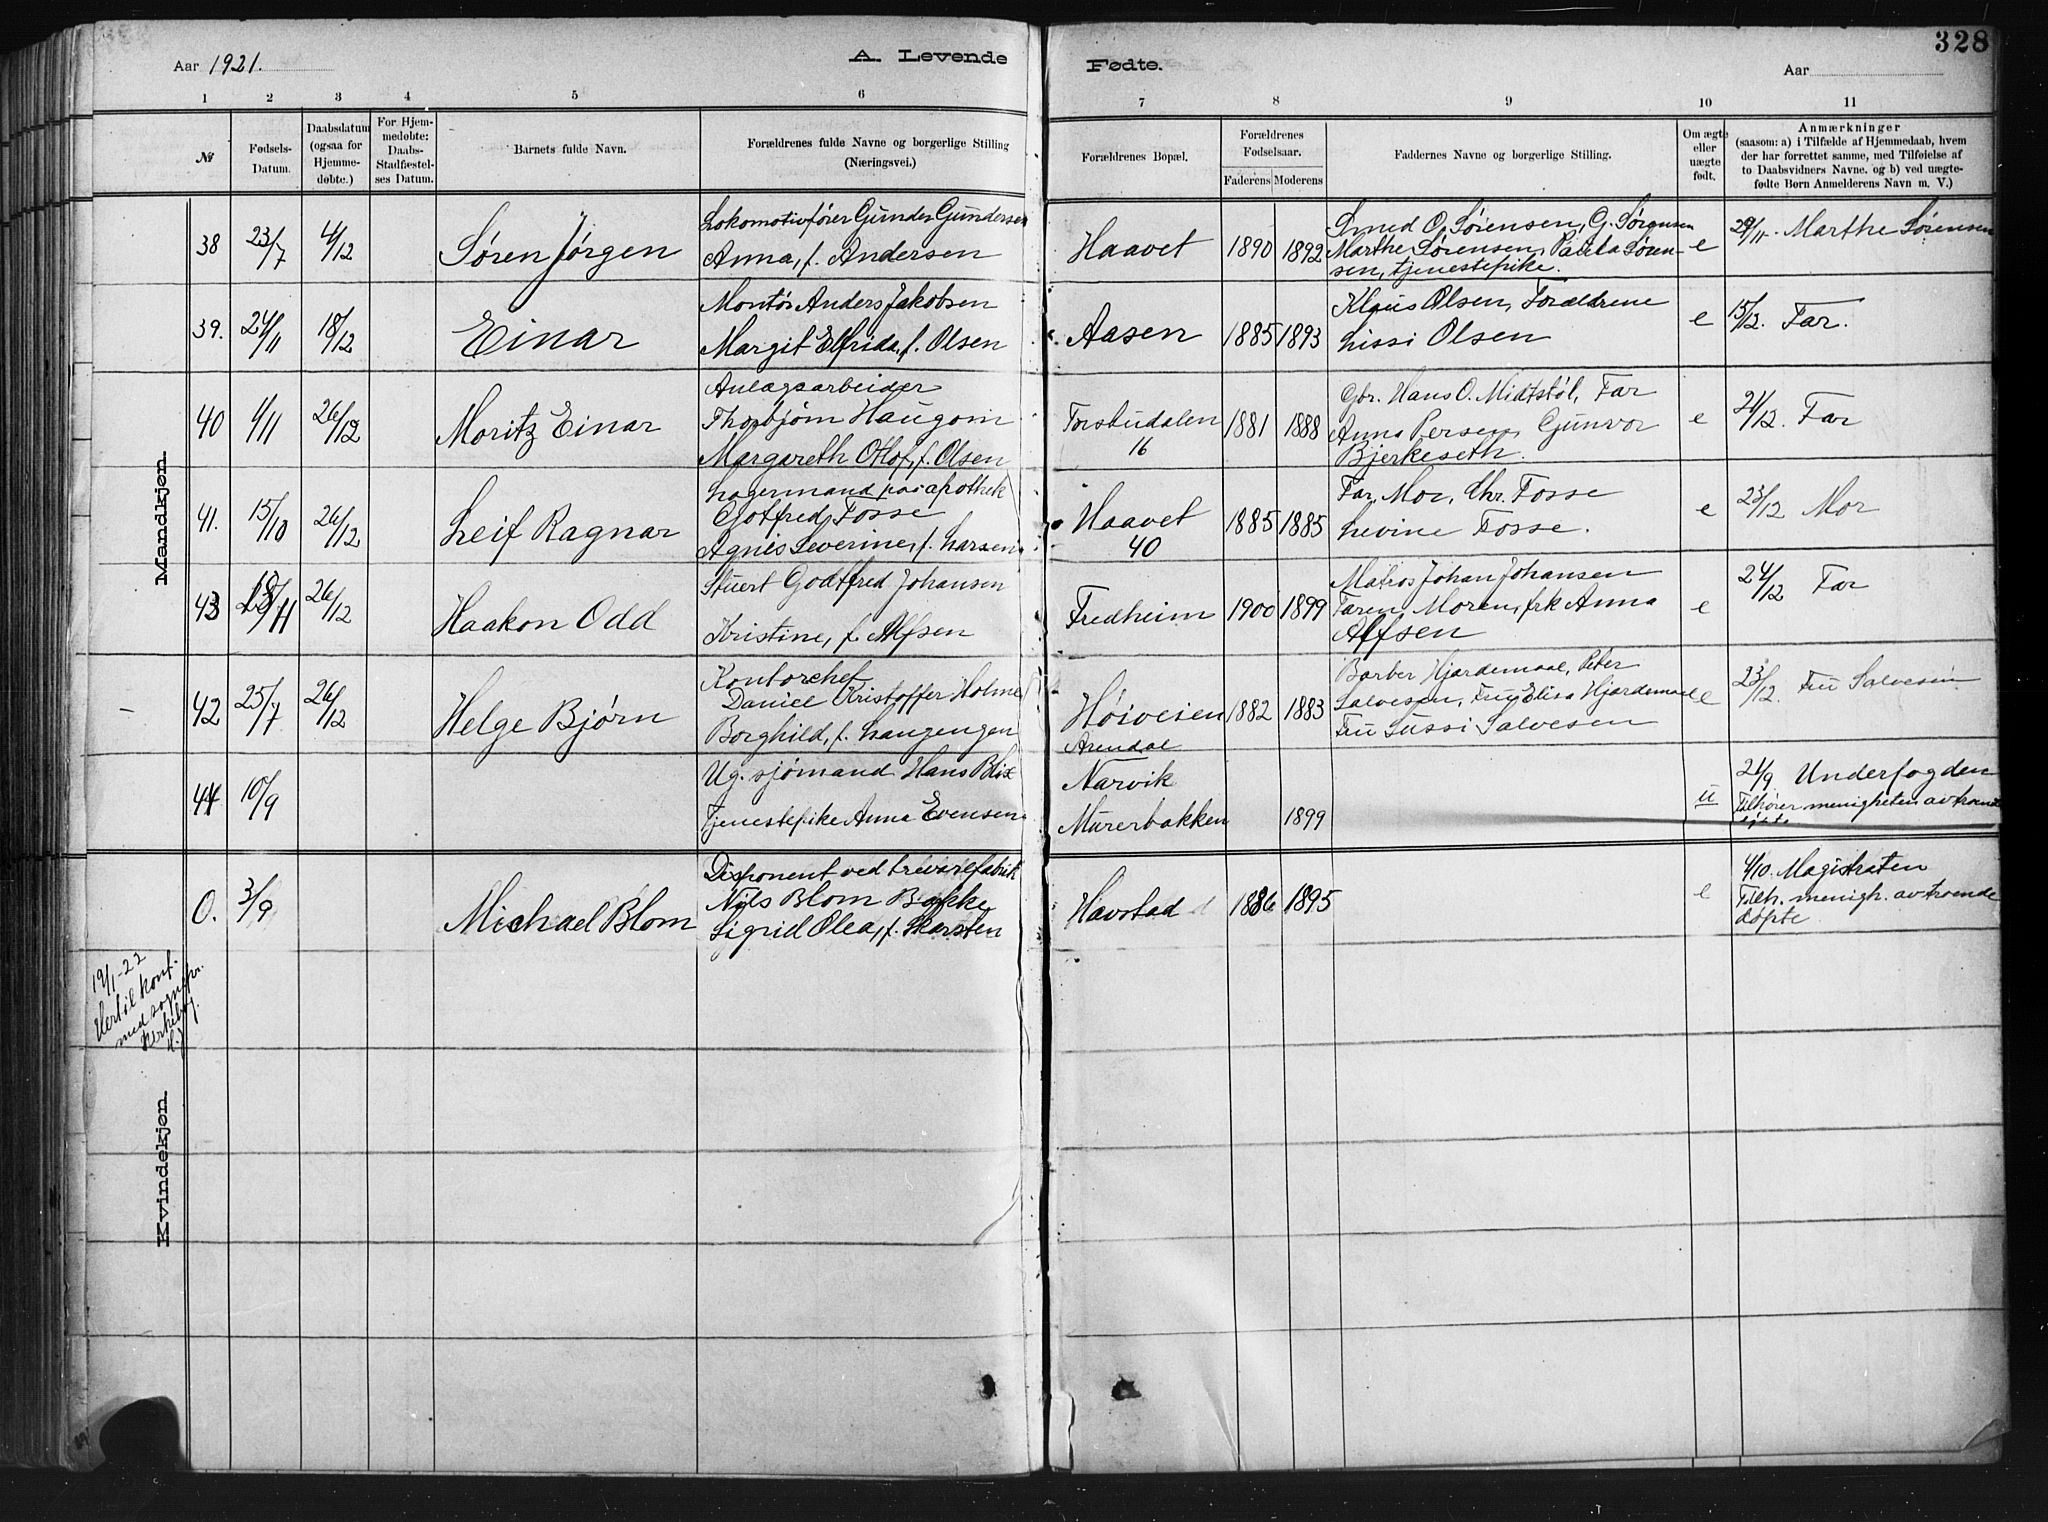 Aar 1921. A. Levende Fødte. 328
Aar
1 2 3 4 5 6 7 8 9 10 11
№
Fødsels-
Datum.
Daabsdatum
(ogsaa for
Hjemme-
døbte.)
For Hjem-
medøbte:
Daabs-
Stadfæstel-
ses Datum.
Barnets fulde Navn.
Forældrenes fulde Navne og borgerlige Stilling
(Næringsvei.)
Forældrenes Bopæl.
Forældrenes
Fødselsaar.
Faderens Moderens
Faddernes Navne og borgerlige Stilling.
Om ægte
eller
uægte
født.
Anmærkninger
(saasom: a) i Tilfælde af Hjemmedaab, hvem
der har forrettet samme, med Tilføielse af
to Daabsvidners Navne. og b) ved uægte-
fødte Børn Anmelderens Navn m. V.)
Mandkjøn.
38 23/7 4/12 Søren Jørgen
Lokomotivfører Gunder Gundersen
Anna, f. Andersen
Haavet 1890 1892
Smed O. Sørensen, G. Sørensen
Marthe Sørensen, Paula Søren-
sen, tjenestepike.
e 29/11. Marthe Sørensen
39. 24/11 18/12 Einar
Montør Anders Jakobsen
Margit Elfrida, f. Olsen
Aasen 1885 1893
Klaus Olsen, Forældrene
Lissi Olsen
e 15/12. Far.
40 4/11 26/12 Moritz Einar
Anlægsarbeider
Thorbjørn Haugom
Margareth Otlof, f. Olsen
Torsbudalen
16
1881 1888
Gbr. Hans O. Midtstøl, Far
Anna Persen, Gunvor
Bjerkeseth.
e 21/12. Far
41. 15/10 26/12 Leif Ragnar
Lagermand paa apothek
Gotfred Fosse
Agnes Severine, f. Larsen
Haavet
40
1885 1885
Far, Mor, Chr. Fosse
Levine Fosse.
e 23/12 Mor
43 26/12 Haakon Odd
Stuert Godtfred Johansen
Kristine, f. Alfsen
Fredheim 1900 1899
Matros Johan Johansen
Faren, Moren, frk Anna
Alfsen
e 24/12 Far
42 25/7 26/12 Helge Bjørn
Kontorchef
Daniel Kristoffer Holme
Borghild, f. Langengen
Høiveien
Arendal
1882 1883
Barber Hjardemaal, Peter
Salvesen, Fru Elisa Hjardemaal
Fru Sussi Salvesen
e 23/12. Fru Salvesen
44 10/9
Ug. sjømand Hans Blix
Tjenestepike Anna Evensen
Narvik
Murerbakken 1899
u 21/9 Underfogden
Tilhører menigheten av troende
døpte
0. 3/9 Michael Blom
Disponent ved trevarefabrik
Nils Blom Bakke
Sigrid Olea, f. Skarsten
Havstad 1886 1895
e 4/10. Magistraten
Tilh. menigh. av troende
døpte
19/1-22
Hertil konf.
med sognepr.
kirkebog.
Kvindekjøn.